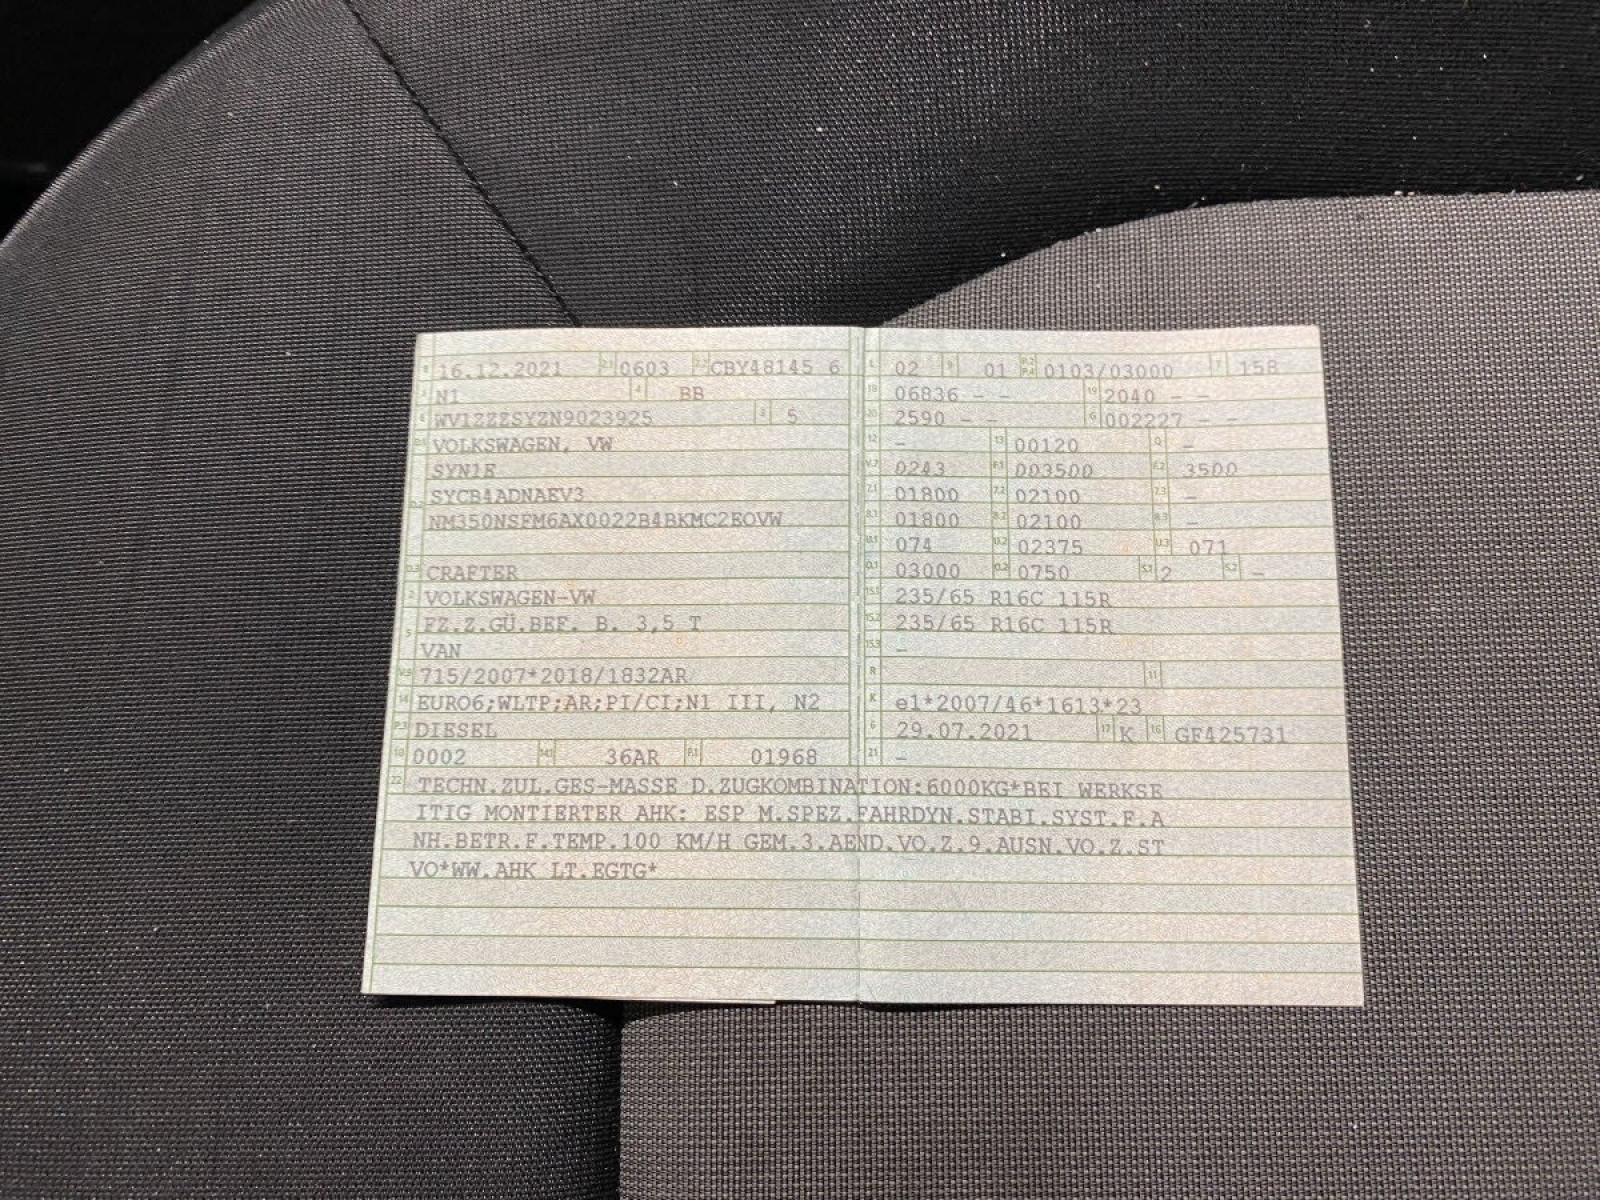 B 16.12.2021 2.1 0603 2.2 CBY48145 6
J N1 4 BB
E WV1ZZZSYZN9023925 3 5
D.1 VOLKSWAGEN, VW
SYN1E
D.2 SYCB4ADNAEV3
NM350NSFM6AX0022B4BKMC2EOVW
D.3 CRAFTER
2 VOLKSWAGEN-VW
5 FZ.Z.GÜ.BEF. B. 3,5 T
VAN
V.9 715/2007*2018/1832AR
14 EURO6;WLTP;AR;PI/CI;N1 III, N2
P.3 DIESEL
10 0002 14.1 36AR P.1 01968
L 02 9 01 P.2 P.4 0103/03000 T 158
18 06836 - - 19 2040 - -
20 2590 - - G 002227 - -
12 - 13 00120 Q -
V.7 0243 F.1 003500 F.2 3500
7.1 01800 7.2 02100 7.3 -
8.1 01800 8.2 02100 8.3 -
U.1 074 U.2 02375 U.3 071
O.1 03000 O.2 0750 S.1 2 S.2 -
15.1 235/65 R16C 115R
15.2 235/65 R16C 115R
15.3 -
R 11
K e1*2007/46*1613*23
6 29.07.2021 17 K 16 GF425731
21 -
22 TECHN.ZUL.GES-MASSE D.ZUGKOMBINATION:6000KG*BEI WERKSE
ITIG MONTIERTER AHK: ESP M.SPEZ.FAHRDYN.STABI.SYST.F.A
NH.BETR.F.TEMP.100 KM/H GEM.3.AEND.VO.Z.9.AUSN.VO.Z.ST
VO*WW.AHK LT.EGTG*